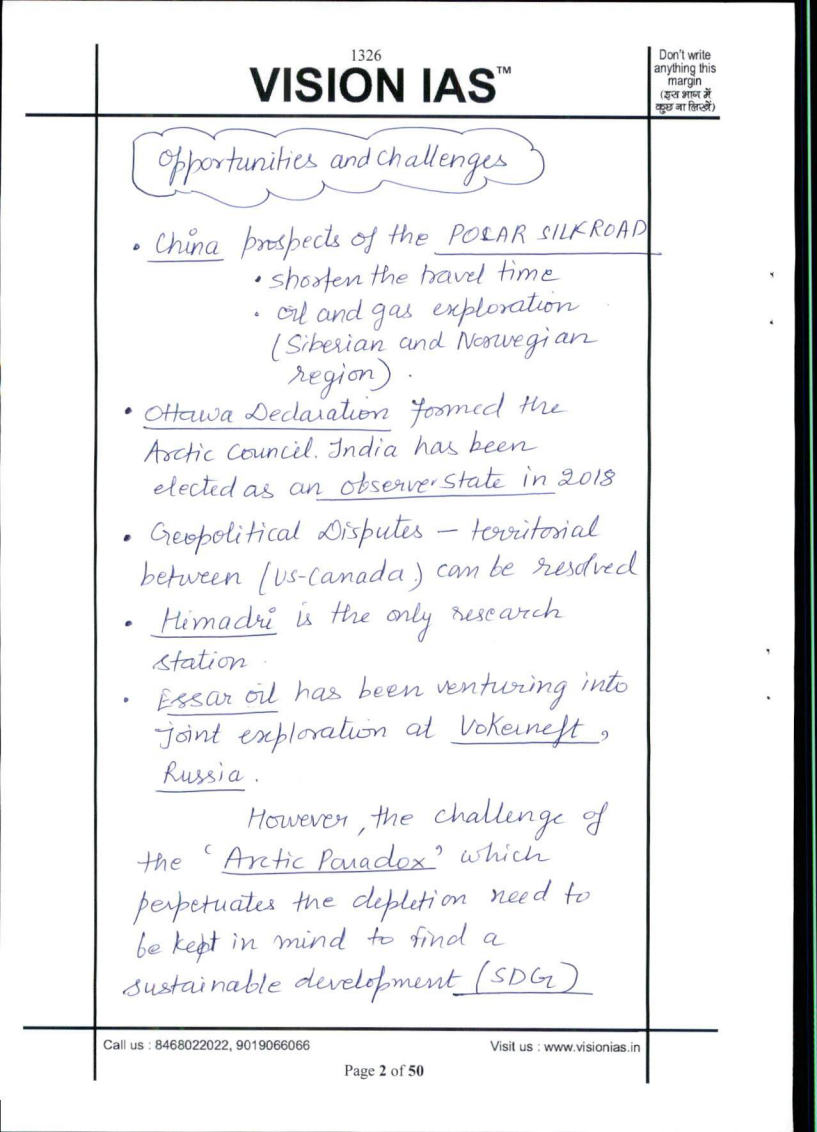 1326
VISION IAS™
Don't write
anything this
margin
(इस भाग में
कुछ ना लिखें)
Opportunities and challenges
• China prospects of the POLAR SILKROAD
• shorten the travel time
• oil and gas exploration
(Siberian and Norwegian
region).
• Ottawa Declaration formed the
Arctic Council. India has been
elected as an observer state in 2018
• Geopolitical Disputes – territorial
between (US-Canada) can be resolved
• Himadri is the only research
station.
• Essar oil has been venturing into
joint exploration at Vokerneft,
Russia.
However, the challenge of
the 'Arctic Paradox' which
perpetuates the depletion need to
be kept in mind to find a
sustainable development (SDG)
Call us : 8468022022, 9019066066
Visit us : www.visionias.in
Page 2 of 50